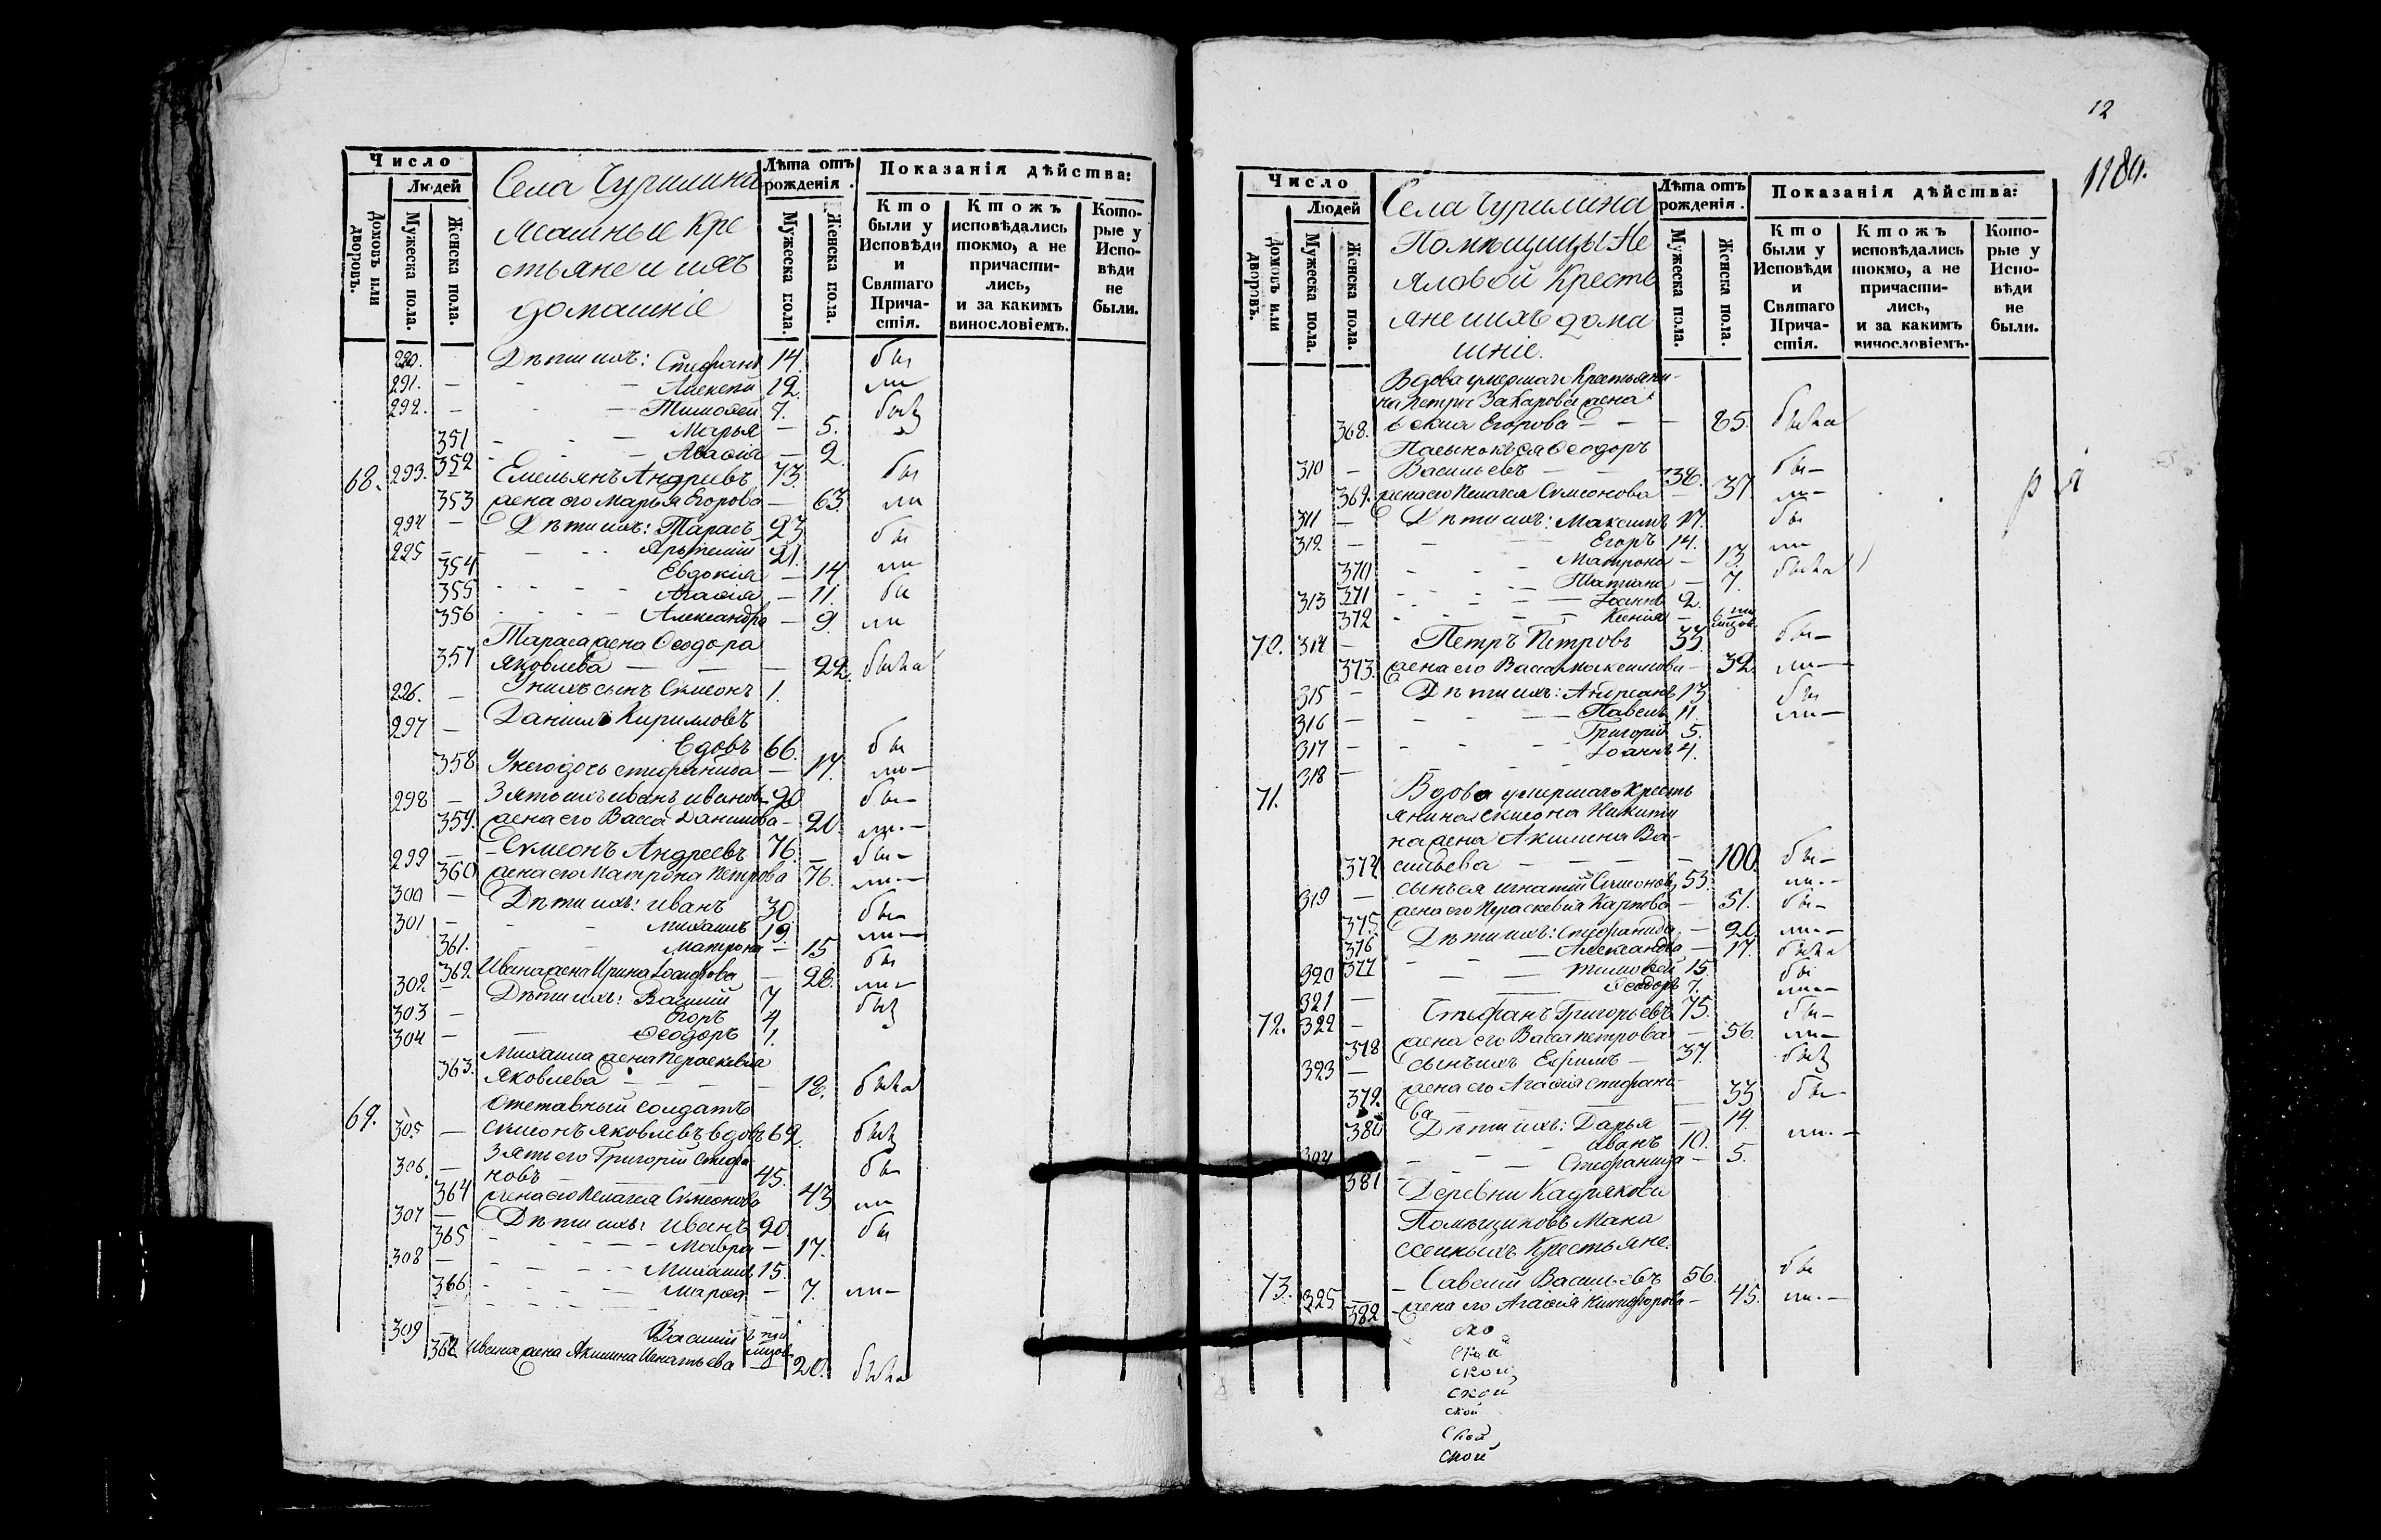 Число
Людей
Домовъ или дворовъ.
Мужеска пола.
Женска пола.
Села Чурилина
Ясашные Кре
стьяне и ихъ
домашніе
Лѣта отъ рожденія.
Мужеска пола.
Женска пола.
Показанія дѣйства:
Кто были у Исповѣди и Святаго Причастія.
Ктожъ исповѣдались токмо, а не причастились, и за какимъ винословіемъ.
Которые у Исповѣди не были.
290. Дѣти ихъ: Стефанъ 14. бы
291. — Алексѣй 12. ли
292. — Тимоѳей 7. былъ
351 Марья — 5.
352 Агаѳія — 2.
68. 293. Емельянъ Андреевъ 73 бы
353 жена его Марья Егорова — 63. ли
294 — Дѣти ихъ: Тарасъ 23 бы
295 Артемій 21.
354 Евдокія — 14 ли
355 Агаѳія — 11. бы
356 Александра — 9 ли
Тараса жена Ѳеодора
357 Яковлева — 22. была
296. — У нихъ сынъ Симеонъ 1.
297 — Даніилъ Кирилловъ
вдовъ 66. бы
358 У него дочь Стефанида — 17. ли —
298 — Зять ихъ Иванъ Ивановъ 20 бы —
359. жена его Васса Данилова — 20. ли —
299 — Симеонъ Андреевъ 76. бы —
360 жена его Матрона Петрова 76. ли —
300 — Дѣти ихъ: Иванъ 30
301 — Михаилъ 19. бы
361. Матрона — 15 ли
362 Ивана жена Ирина Іосифова — 28. бы
302. Дѣти ихъ: Василій 7 ли
303 — Егоръ 4 былъ
304 — Ѳеодоръ 1.
Михаила жена Параскевія
363. Яковлева — 18. была
69. Отставный солдатъ
305 — Симеонъ Яковлевъ вдовъ 62 былъ
306. — Зять его Григорій Стефа
новъ 45. бы
364 жена его Пелагея Симеонова 43 ли
307 — Дѣти ихъ: Иванъ 20. бы
365 Мавра — 17.
308 — Михаилъ 15.
366 Марѳа — 7. ли —
309 Василій
367 Ивана жена Акилина Игнатьева — 20. была
12
1180.
Число
Людей
Домовъ или дворовъ.
Мужеска пола.
Женска пола.
Села Чурилина
Помѣщицы Не
яловой Кресть
яне ихъ дома
шніе.
Лѣта отъ рожденія.
Мужеска пола.
Женска пола.
Показанія дѣйства:
Кто были у Исповѣди и Святаго Причастія.
Ктожъ исповѣдались токмо, а не причастились, и за какимъ винословіемъ.
Которые у Исповѣди не были.
Вдова умершаго Крестьяни-
на Петра Захарова жена
368. Егорова — — — 85. была
Пасынокъ ея Ѳеодоръ
310 — Васильевъ 38. бы —
369. жена его Пелагея Симеонова — 37 ли —
311 — Дѣти ихъ: Максимъ 17. бы
312 — Егоръ 14. ли
370 Матрона — 13. была
371 Татіана — 7.
313 Іоаннъ 2.
372 Ксенія —
70. 314 — Петръ Петровъ 33. бы —
373. жена его Васса Максимова — 32. ли —
315 — Дѣти ихъ: 13 бы
316 — Павелъ 11. ли —
317 — Григорій 5.
318 — Іоаннъ 4.
71. Вдова умершаго Кресть
янина Симеона Никити
на жена Акилина Ва-
374 сильева — — — 100. бы —
319 — сынъ ея Игнатій Симеоновъ 53. ли —
375 жена его Параскевія Карпова — 51. бы —
376 Дѣти ихъ: Стефанида — 20. ли —
377 Александра — 17. была
320 Тимоѳей 15. бы
321 — Ѳеодоръ 7. ли —
72. 322 — Стефанъ Григорьевъ 75. бы —
378 жена его Васса Петрова — 56. ли —
323 — сынъ ихъ Ефимъ — 37. былъ
379. жена его Агаѳія Стефано-
ва — 33 бы —
380 Дѣти ихъ: Дарья — 14.
324 Иванъ 10. ли —
381 Стефанида — 5.
Деревни Кадрякова
Помѣщиковъ Мана
ссеиныхъ Крестьяне.
73. 325 — Савелій Васильевъ 56. бы
382 жена его Агаѳія Никифорова — 45. ли —
ско
ской
ской
ской
ской
ской